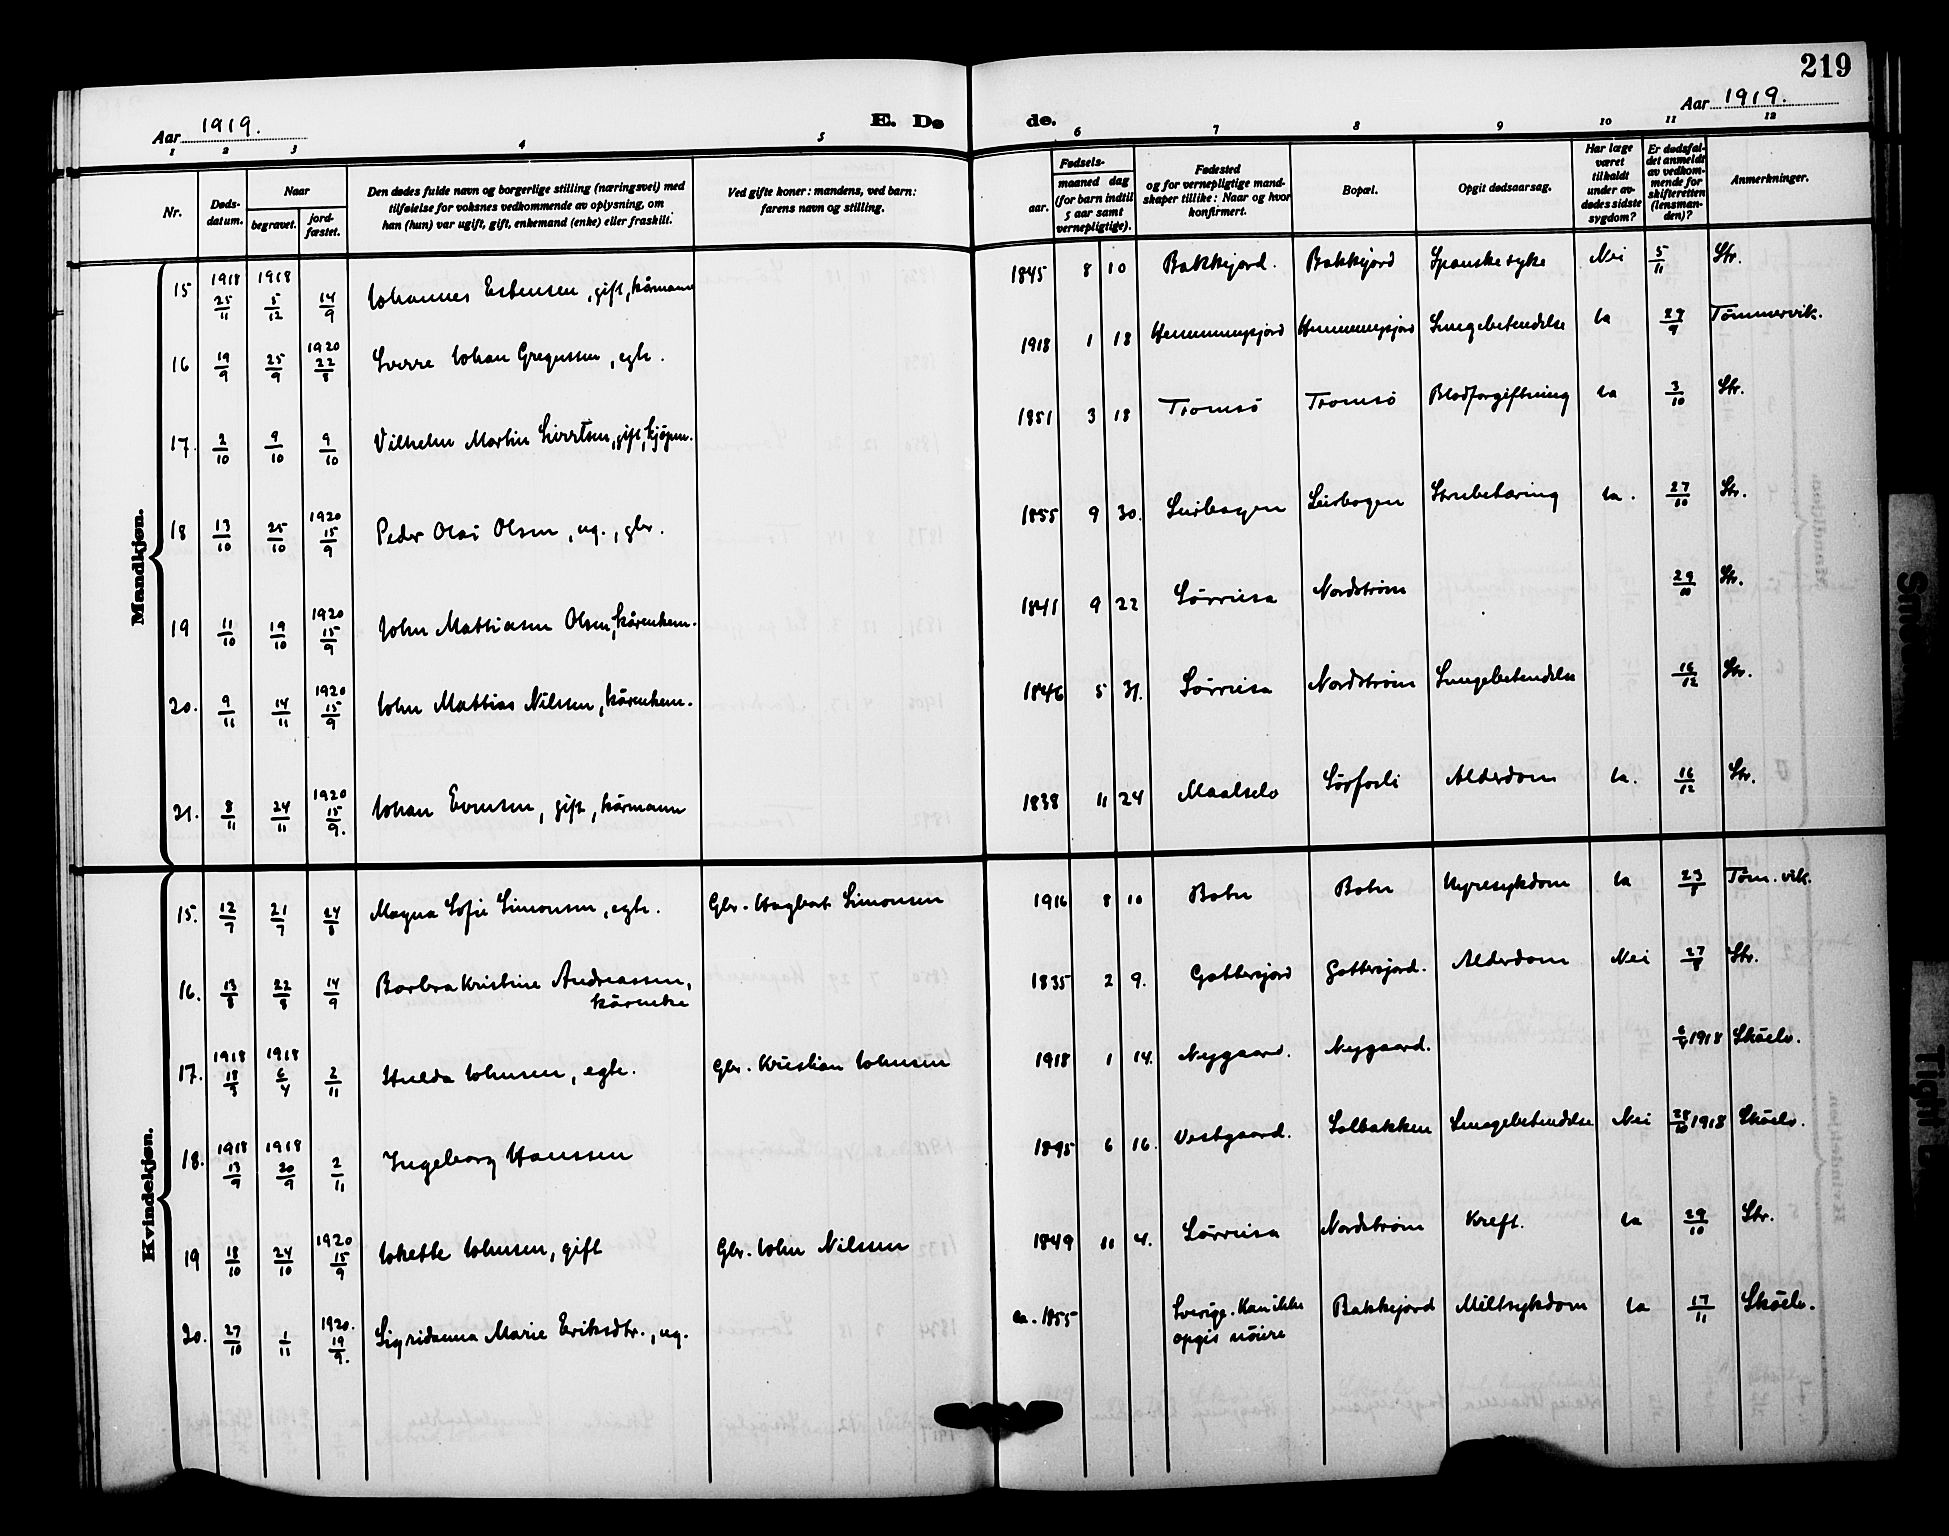 219
Aar 1919.
E. De
de.
Aar 1919.
1 2 3 4 5 6 7 8 9 10 11 12
Nr.
Døds-
datum.
Naar
begravet.
jord-
fæstet.
Den dødes fulde navn og borgerlige stilling (næringsvei) med
tilføielse for voksnes vedkommende av oplysning, om
han (hun) var ugift, gift, enkemand (enke) eller fraskilt.
Ved gifte koner: mandens, ved barn:
farens navn og stilling.
Fødsels-
aar.
maaned dag
(for barn indtil
5 aar samt
vernepligtige).
Fødested
og for vernepligtige mand-
skaper tillike: Naar og hvor
konfirmert.
Bopæl.
Opgit dødsaarsag.
Har læge
været
tilkaldt
under av-
dødes sidste
sygdom?
Er dødsfal-
det anmeldt
av vedkom-
mende for
skifteretten
(lensman-
den)?
Anmerkninger.
Mandkjøn.
15 1918 25/11 1918 5/12 14/9 Johannes Esbensen, gift, kårmann 1845 8 10 Bakkejord. Bakkejord Spanske syke Nei 5/11 Str.
16 19/9 25/9 1920 22/8 Sverre Johan Gregussen, egte. 1918 1 18 Lungebetendelse Ja 29/9 Tømmervik.
17. 2/10 9/10 9/10 Vilhelm Martin Sivertsen, gift, kjøpm. 1851 3 18 Tromsö Tromsö Blodforgiftning Ja 3/10 Str.
18 13/10 25/10 1920 15/9 Peder Olai Olsen, ug., gbr. 1855 9 30. Leirbogen Leirbogen Strubetæring Ja. 27/10 Str.
19 11/10 19/10 1920 15/9 John Mathiasen Olsen, kårenkem. 1841 9 22 Sörreisa Nordstrøm 29/10 Str.
20. 9/11 14/11 1920 15/9 John Mattias Nilssen, kårenkem. 1846 5 31. Sörreisa Nordstrøm Lungebetendelse 16/12 Str.
21. 8/11 24/11 1920 15/9. Johan Evensen, gift, kårmann 1838 11 24 Maalselv Sörfosli Alderdom Ja. 16/12 Str.
Kvindekjøn.
15. 12/7 21/7 24/8 Magna Sofie Simonsen, egte. Gbr. Hagbart Simonsen 1916 8 10 Botn Botn Nyresykdom Ja 23/8 Tøm.vik.
16. 13/8 22/8 14/9 Barbra Kristine Andreassen,
kårenke 1835 2 9. Gottersjord Gottersjord. Alderdom Nei 27/8 Str.
17. 1918 18/3 1918 6/4 2/11 Hulda Johnsen, egte. Gbr. Kristian Johnsen 1918 1 14. Nygaard. Nygaard. 1918 Sköelv.
18. 1918 13/9 1918 20/9 2/11 Ingeborg Hanssen 1895 6 16. Vestgaard. Solbakken Lungebetendelse Nei 28/10 1918 Sköelv.
19 18/10 24/10 1920 15/9 Jokette Johnsen, gift Gbr. John Nilssen 1849 11 4. Sörreisa Nordstrøm Kreft. Ja 29/10 Str.
20. 27/10 1/11 1920. 19/9. Sigridanna Marie Eriksdtr., ug. ca. 1855 Sverige. Kan ikke
opgis nöiere Bakkejord Miltsykdom Ja 17/11 Sköelv.